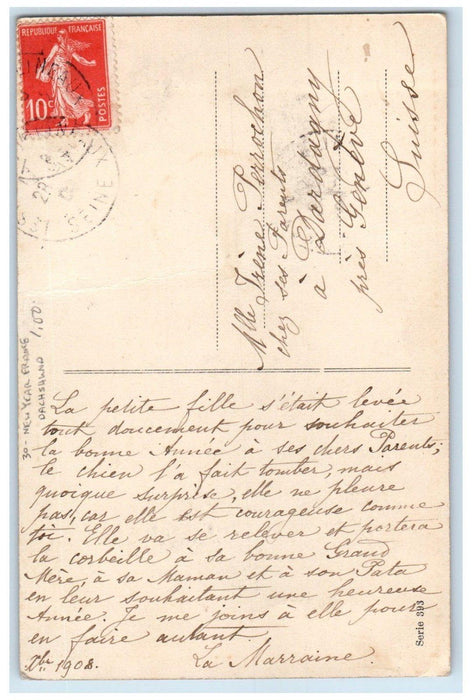 REPUBLIQUE FRANÇAISE
10c
POSTES
SEINE
Mlle Irène Perrochon
chez ses Parents
à Dardagny
près Genève
Suisse
30 - NEW YEAR FRANCE
DACHSHUND
1,00
La petite fille s'était levée
tout doucement pour souhaiter
la bonne Année à ses chers Parents;
le chien l'a fait tomber, mais
quoique surprise, elle ne pleure
pas, car elle est courageuse comme
toi. Elle va se relever et portera
la corbeille à sa bonne Grand
Mère, à sa Maman et à son Papa
en leur souhaitant une heureuse
Année. Je me joins à elle pour
en faire autant.
Xbre 1908.
La Marraine.
Serie 393